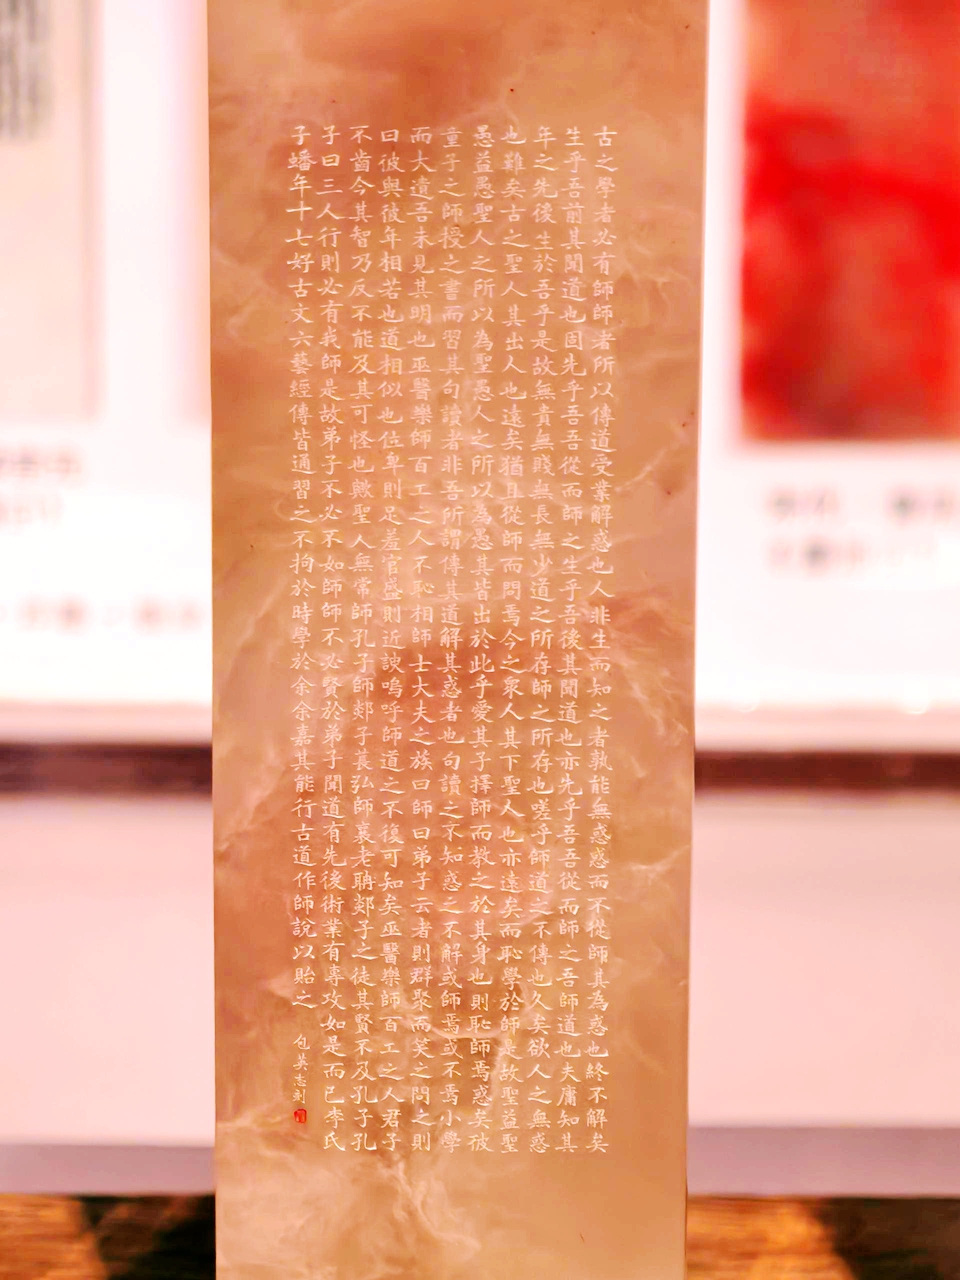 古之學者必有師師者所以傳道受業解惑也人非生而知之者孰能無惑惑而不從師其為惑也終不解矣
生乎吾前其聞道也固先乎吾吾從而師之生乎吾後其聞道也亦先乎吾吾從而師之吾師道也夫庸知其
年之先後生於吾乎是故無貴無賤無長無少道之所存師之所存也嗟乎師道之不傳也久矣欲人之無惑
也難矣古之聖人其出人也遠矣猶且從師而問焉今之眾人其下聖人也亦遠矣而恥學於師是故聖益聖
愚益愚聖人之所以為聖愚人之所以為愚其皆出於此乎愛其子擇師而教之於其身也則恥師焉惑矣彼
童子之師授之書而習其句讀者非吾所謂傳其道解其惑者也句讀之不知惑之不解或師焉或不焉小學
而大遺吾未見其明也巫醫樂師百工之人不恥相師士大夫之族曰師曰弟子云者則群聚而笑之問之則
曰彼與彼年相若也道相似也位卑則足羞官盛則近諛嗚呼師道之不復可知矣巫醫樂師百工之人君子
不齒今其智乃反不能及其可怪也歟聖人無常師孔子師郯子萇弘師襄老聃郯子之徒其賢不及孔子孔
子曰三人行則必有我師是故弟子不必不如師師不必賢於弟子聞道有先後術業有專攻如是而已李氏
子蟠年十七好古文六藝經傳皆通習之不拘於時學於余余嘉其能行古道作師說以貽之
包英志刻